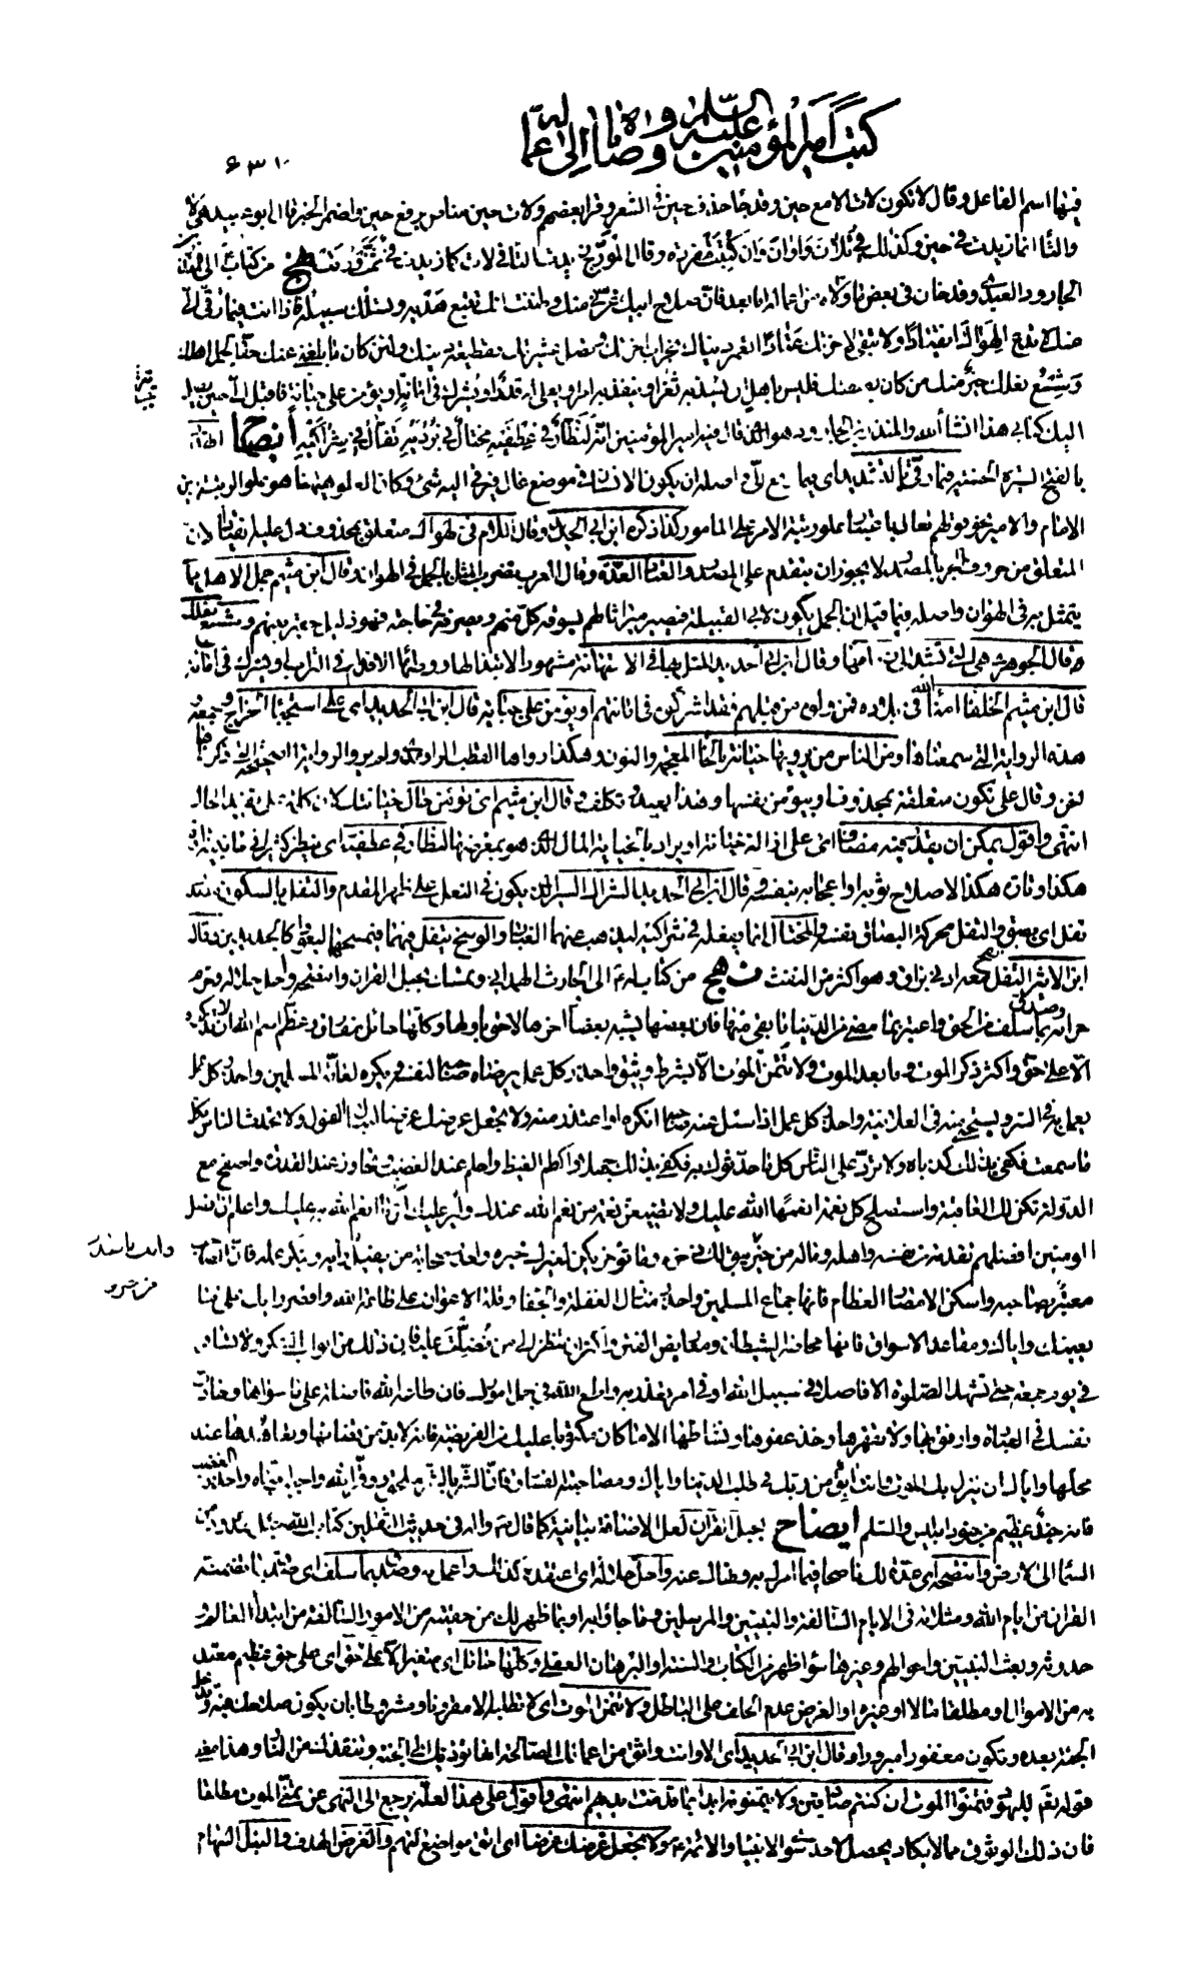 كتب أمير المؤمنين عليه السلام ووصاياه إلى عماله
٦٣١
فيها اسم الفاعل وقال لا تكون لات الا مع حين وقد جاء حذف حين في الشعر وقرأ بعضهم ولات حين مناص برفع حين واضمر الخبر وقال ابو عبيد هي لا
والتاء انما زيدت في حين وكذلك في ثلان واوان وان كتبت مفردة وقال المؤرج زيدت التاء في لات كما زيدت في ثمت وربت نهج من كتاب له الى المنذر بن
الجارود العبدي وقد خان في بعض ما ولاه من اعماله اما بعد فان صلاح ابيك غرني منك وظننت انك تتبع هديه وتسلك سبيله فاذا انت فيما رقي الي
عنك لا تدع لهواك انقيادا ولا تبقي لاخرتك عتادا تعمر دنياك بخراب اخرتك وتصل عشيرتك بقطيعة دينك ولئن كان ما بلغني عنك حقا لجمل اهلك
وشسع نعلك خير منك من كان بصفتك فليس باهل ان يسد به ثغر او ينفذ به امر او يعلى له قدر او يشرك في امانة او يؤمن على جباية فاقبل الي حين يصل
اليك كتابي هذا انشاء الله والمنذر بن الجارود هو الذي قال فيه امير المؤمنين انه لنظار في عطفيه مختال في برديه تفال في شراكيه ايضاح الهدي
بالفتح السيرة الحسنة فيما رقي الي بالتشديد اي فيما رفع الي واصله ان يكون الانسان في موضع عال فيرقى اليه شيء وكان العلو ههنا هو علو الرتبة بين
الامام والامير نحو قولهم تعال باعتبار علو رتبة الامر على المامور كذا ذكره ابن ابي الحديد وقال اللام في لهواك متعلق بمحذوف دل عليه انقيادا لان
المتعلق من حروف الجر بالمصدر لا يجوز ان يتقدم على المصدر والعتاد العدة وقال العرب تضرب المثل بالجمل في الهوان وقال ابن ميثم جمل الاهل مما
يتمثل به في الهوان واصله فيما قيل ان الجمل يكون لابي القبيلة فيصير ميراثا لهم يسوقه كل منهم ويصرفه في حاجته فهو ذليل حقير بينهم وشسع نعلك
وقال الجوهري هي التي تشد الى زمامها وقال ابن ابي الحديد المثل بها في الاستهانة مشهور لابتذالها ووطئها الاقدام في التراب او يشرك في امانة
قال ابن ميثم الخلفاء امناء الله في بلاده فمن ولوه من قبلهم فقد اشركوه في امانتهم او يؤمن على جباية قال ابن ابي الحديد اي على استجباء الخراج وجمعه
هذه الرواية التي سمعناها ومن الناس من يرويها خيانة بالخاء المعجمة والنون وهكذا رواها القطب الراوندي ولم يرو الرواية الصحيحة التي ذكرناها
نحن وقال على تكون متعلقة بمحذوف او بيؤمن نفسها وهذا بعيد وتكلف وقال ابن ميثم اي يؤمن حال خيانتك لان كلمة على تفيد الحال
انتهى واقول يمكن ان يقدر فيه مضاف اي على ازالة خيانة او يراد بالخيانة المال الذي هو بمعرضها لنظار في عطفيه اي ينظر كثيرا في جانبيه تارة
هكذا وتارة هكذا لاصلاح ثوبه او اعجابه بنفسه وقال ابن ابي الحديد الشراك السير الذي يكون في النعل على ظهر القدم والتفل بالسكون مصدر
تفل اي بصق والتفل محركة البصاق نفسه والمختال انما يفعله في شراكيه ليذهب عنهما الغبار والوسخ يتفل فيهما ويمسحهما ليعودا كالجديدين وقال
ابن الاثير التفل نفخ معه ادنى بزاق وهو اكثر من النفث نهج من كتاب له الى الحارث الهمداني وتمسك بحبل القران وانتصحه واحل حلاله وحرم
حرامه وصدق بما سلف من الحق واعتبر بما مضى من الدنيا ما بقي منها فان بعضها يشبه بعضا واخرها لاحق باولها وكلها حائل مفارق وعظم اسم الله ان تذكره
الا على حق واكثر ذكر الموت وما بعد الموت ولا تتمن الموت الا بشرط وثيق واحذر كل عمل يرضاه صاحبه لنفسه ويكره لعامة المسلمين واحذر كل عمل
يعمل به في السر ويستحيى منه في العلانية واحذر كل عمل اذا سئل عنه صاحبه انكره او اعتذر منه ولا تجعل عرضك غرضا لنبال القول ولا تحدث الناس بكل
ما سمعت فكفى بذلك كذبا ولا ترد على الناس كل ما حدثوك به فكفى بذلك جهلا واكظم الغيظ واحلم عند الغضب وتجاوز عند القدرة واصفح مع
الدولة تكن لك العاقبة واستصلح كل نعمة انعمها الله عليك ولا تضيعن نعمة من نعم الله عندك ولير عليك اثر ما انعم الله به عليك واعلم ان افضل
المؤمنين افضلهم تقدمة من نفسه واهله وماله من خير يبق لك ذخره وما تؤخره يكن لغيرك خيره واحذر صحابة من يفيل رأيه وينكر عمله فان الصاحب
معتبر بصاحبه واسكن الامصار العظام فانها جماع المسلمين واحذر منازل الغفلة والجفاء وقلة الاعوان على طاعة الله واقصر رأيك على ما
يعنيك واياك ومقاعد الاسواق فانها محاضر الشيطان ومعاريض الفتن واكثر ان تنظر الى من فضلت عليه فان ذلك من ابواب الشكر ولا تسافر
في يوم جمعة حتى تشهد الصلوة الا فاصلا في سبيل الله او في امر تعذر به واطع الله في جمل امورك فان طاعة الله فاضلة على ما سواها وخادع
نفسك في العبادة وارفق بها ولا تقهرها وخذ عفوها ونشاطها الا ما كان مكتوبا عليك من الفريضة فانه لا بد من قضائها وتعاهدها عند
محلها واياك ان ينزل بك الموت وانت آبق من ربك في طلب الدنيا واياك ومصاحبة الفساق فان الشر بالشر ملحق ووقر الله واحبب احباءه واحذر الغضب
فانه جند عظيم من جنود ابليس والسلام ايضاح بحبل القران لعل الاضافة بيانية كما قال في حديث الثقلين كتاب الله حبل ممدود من
السماء الى الارض وانتصحه اي عده لك ناصحا فيما امرك به ونهاك عنه واحل حلاله اي اعتقده كذلك واعمل به وصدق بما سلف اي صدق بما تضمنه
القران من ايام الله ومثلاته في الايام السالفة والنبيين والمرسلين وما جاؤا به او بما ظهر لك من حقيته من الامور السالفة من ابتداء العالم و
حدوثه وبعث النبيين واحوالهم وغيرها سواء ظهر من الكتاب والسنة او البرهان العقلي وكلها حائل اي متغير الا على حق اي على حق عظيم معتد
به من الاموال او مطلقا مالا او غيره او الغرض عدم الحلف على الباطل ولا تتمن الموت اي لا تطلبه الا مقرونا ومشروطا بان يكون صلاحك فيه وتدخل
الجنة بعده وتكون مغفورا مبرورا وقال ابن ابي الحديد اي الا وانت واثق من اعمالك الصالحة انها تؤديك الى الجنة وتنقذك من النار وهذا معنى
قوله تعالى لليهود فتمنوا الموت ان كنتم صادقين ولا يتمنونه ابدا بما قدمت ايديهم انتهى واقول على هذا لعله يرجع الى النهي عن تمني الموت مطلقا
فان ذلك الوثوق مما لا يكاد يحصل لاحد سوى الانبياء والائمة ولا تجعل عرضك غرضا اي اتق مواضع التهم والغرض الهدف والنبل السهام